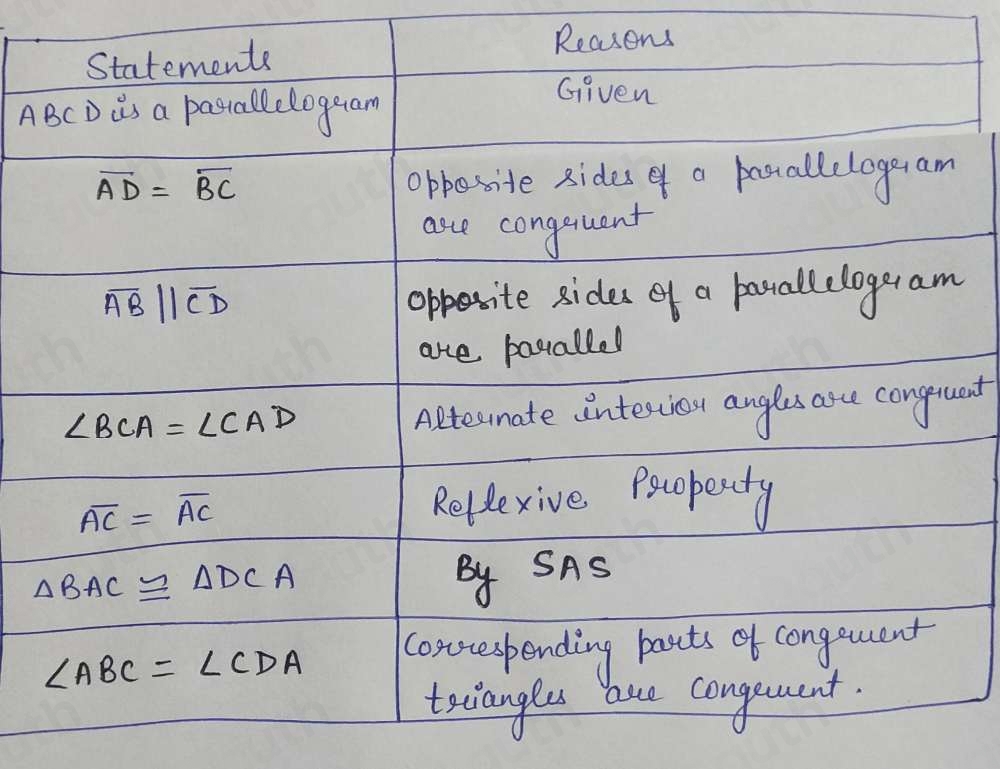 Statements
Reasons
ABCD is a parallelogram
Given
A̅D̅ = B̅C̅
Opposite sides of a parallelogram
are congruent
A̅B̅ || C̅D̅
Opposite sides of a parallelogram
are parallel
∠BCA = ∠CAD
Alternate interior angles are congruent
A̅C̅ = A̅C̅
Reflexive Property
△BAC ≌ △DCA
By SAS
∠ABC = ∠CDA
Corresponding parts of congruent
triangles are congruent.